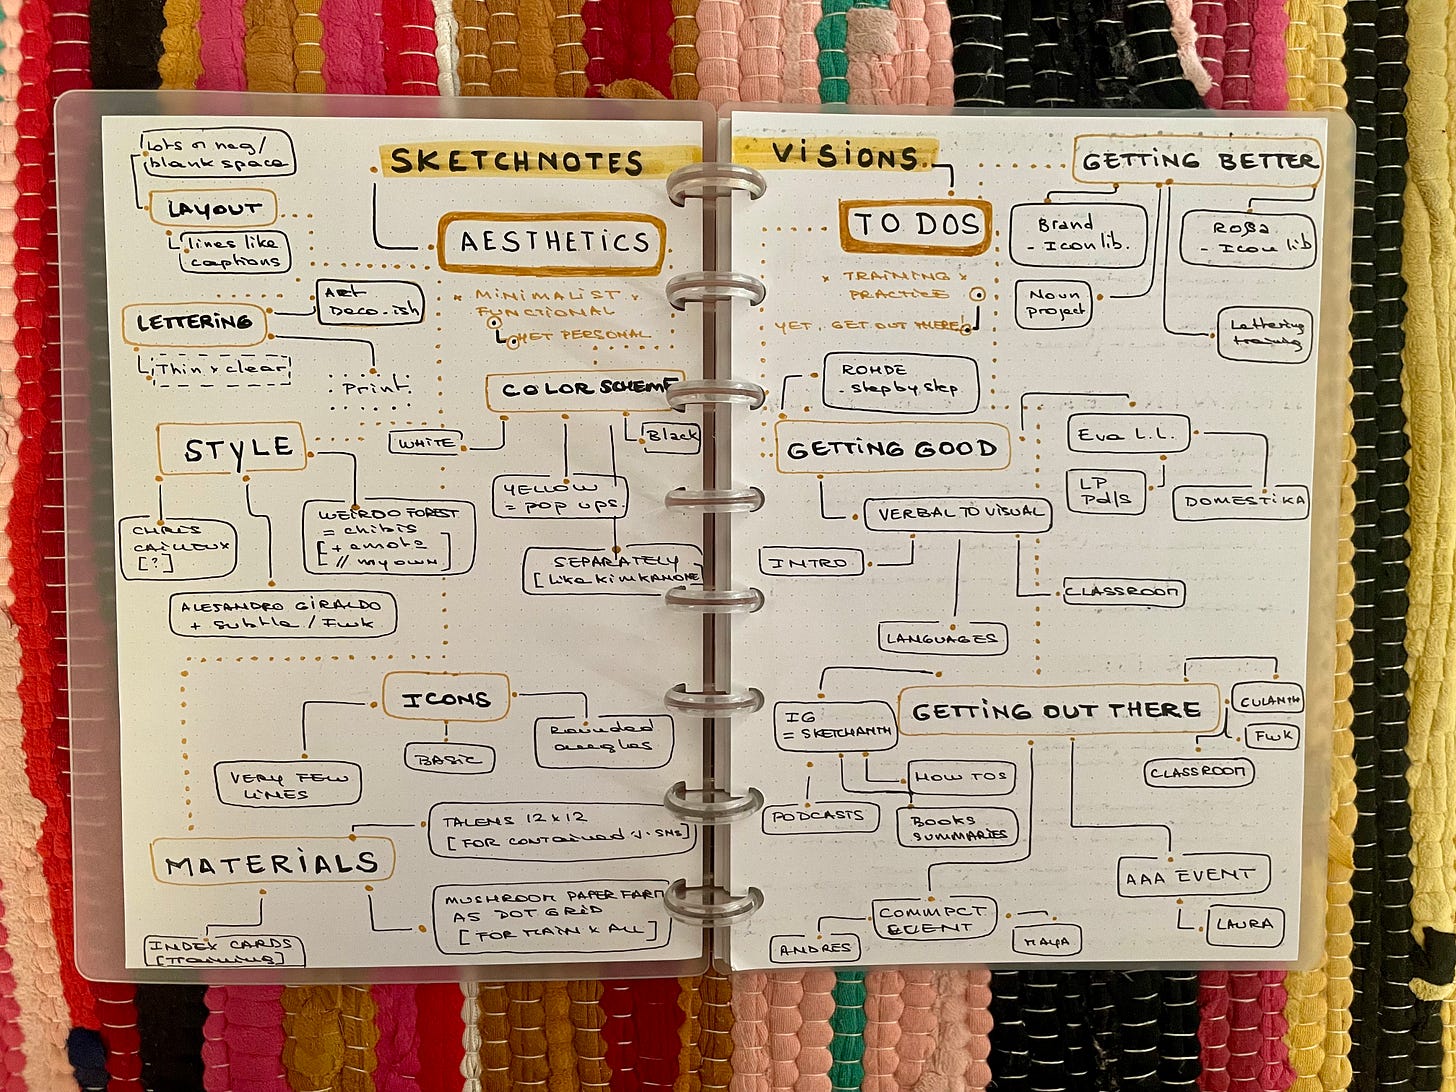 SKETCHNOTES
Lots of neg/
blank space
LAYOUT
lines like
captions
AESTHETICS
x MINIMALIST x
FUNCTIONAL
YET PERSONAL
LETTERING
ART
DECO-ish
Thin & clear
Print
COLOR SCHEME
WHITE
Black
YELLOW
= POP UPS.
SEPARATELY
[Like KIMKANONE
STYLE
CHRIS
CAILLEUX
[?]
WEIRDO FOREST
= chibis
[+ emote
// my own]
ALEJANDRO GIRALDO
+ subtle / FWK
ICONS
VERY FEW
LINES
BASIC
Rounded
angles
MATERIALS
TALENS 12 x 12
[FOR CONTAINED V. SNS]
MUSHROOM PAPER FARM
A5 DOT GRID
[FOR MAIN & ALL]
INDEX CARDS
[Training]
VISIONS
TO DOS
x TRAINING x
PRACTICE
YET, GET OUT THERE!
GETTING BETTER
Brand
- Icon lib.
ROSA
- Icon lib
Noun
project
Lettering
training
ROHDE
- step by step
GETTING GOOD
Eva L.L.
LP
Pdfs
DOMESTIKA
VERBAL TO VISUAL
INTRO
LANGUAGES
CLASSROOM
GETTING OUT THERE
IG
= SKETCHANTH
PODCASTS
HOW TOS
BOOKS
SUMMARIES
CULANTH
FWK
CLASSROOM
AAA EVENT
LAURA
COMMPCT
EVENT
ANDRES
MAYA